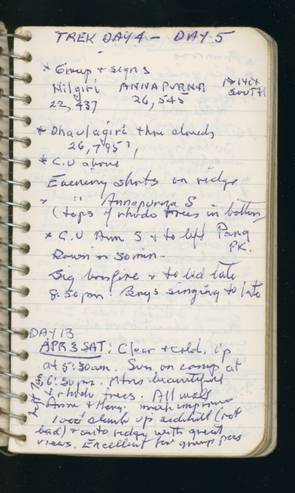 TREK DAY 4 - DAY 5
* Group + signs
Nilgiri ANNAPURNA SOUTH
22,437 26,545
* Dhaulagiri thru clouds
26,795'
* C.U above
Evening shots on ridge
" " Annapurna S
(tops of rhodo trees in bottom
* C.U Ann S + to left Pang
PK.
Down in 50 min.
Big bonfire + to bed late
8:30pm! Boys singing to late
DAY 13
APR 3 SAT: Clear + cold. Up
at 5:30am. Sun on camp at
6:30 am. Mtns beautiful
+ rhodo trees. All well
Anne + Henry much improved
1000' climb up sidehill (not
bad) + onto ridge with great
views. Excellent for group pics